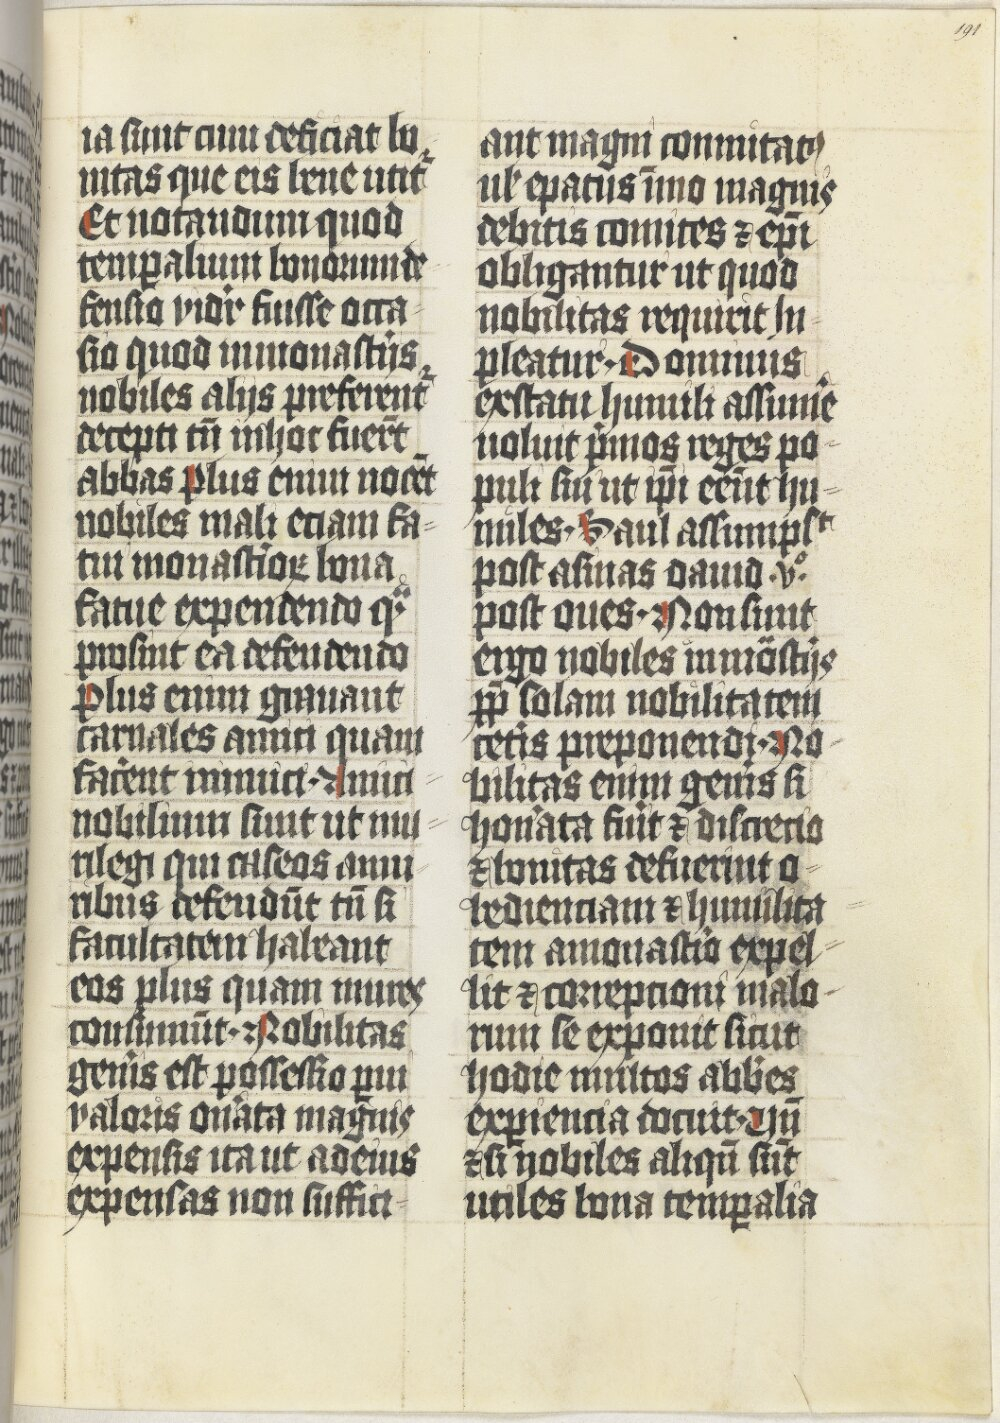 191
ia sunt cum deficiat bo
nitas que eis bene utit᷑
Et notandum quod
temꝑalium bonorum de
fensio vidr̄ fuisse occa
sio quod inmonastijs
nobiles alijs preferent᷑
decepti tn̄ inhoc fuer̄t
abbas Plus enim nocēt
nobiles mali eciam fa
tui monastioꝝ bona
fatue expendendo qͣ
prosint ea defendendo
Plus enim grauant
carnales amici quam
facēent inimici · Amici
nobilium sunt ut mu
rilegi qui caseos amu
ribus defendūt tn̄ si
facultatem habeant
eos plus quam mures
consumūt · Nobilitas
genīs est possessio pui
valoris on̄ata magnis
expensis ita ut ad eius
expensas non suffici
ant magni comitatꝰ
ul̄ epatus īmo magnis
debitis comites ⁊ ep̄i
obligantur ut quod
nobilitas requirit In
pleatur · Dominus
exstatu humili assumē
uoluit p̄mos reges po
puli sui ut ip̄i eēnt hu
miles · Saul assumpsit
post asinas dauid · vͦ ·
post oues · Non sunt
ergo nobiles inmōstijs
ꝓp̄ solam nobilitatem
cetīs preponendi · No
bilitas enim genīs si
honāta fūit ⁊ discrecio
⁊ bonitas defuerint o
bedienciam ⁊ humilita
tem amonastio expel
lit ⁊ correpcioni malo
rum se exponit sicut
hodie multos abb̄es
exꝑiencia docuit · Vn̄
⁊ si nobiles aliqn̄ sūt
utiles bona temꝑalia